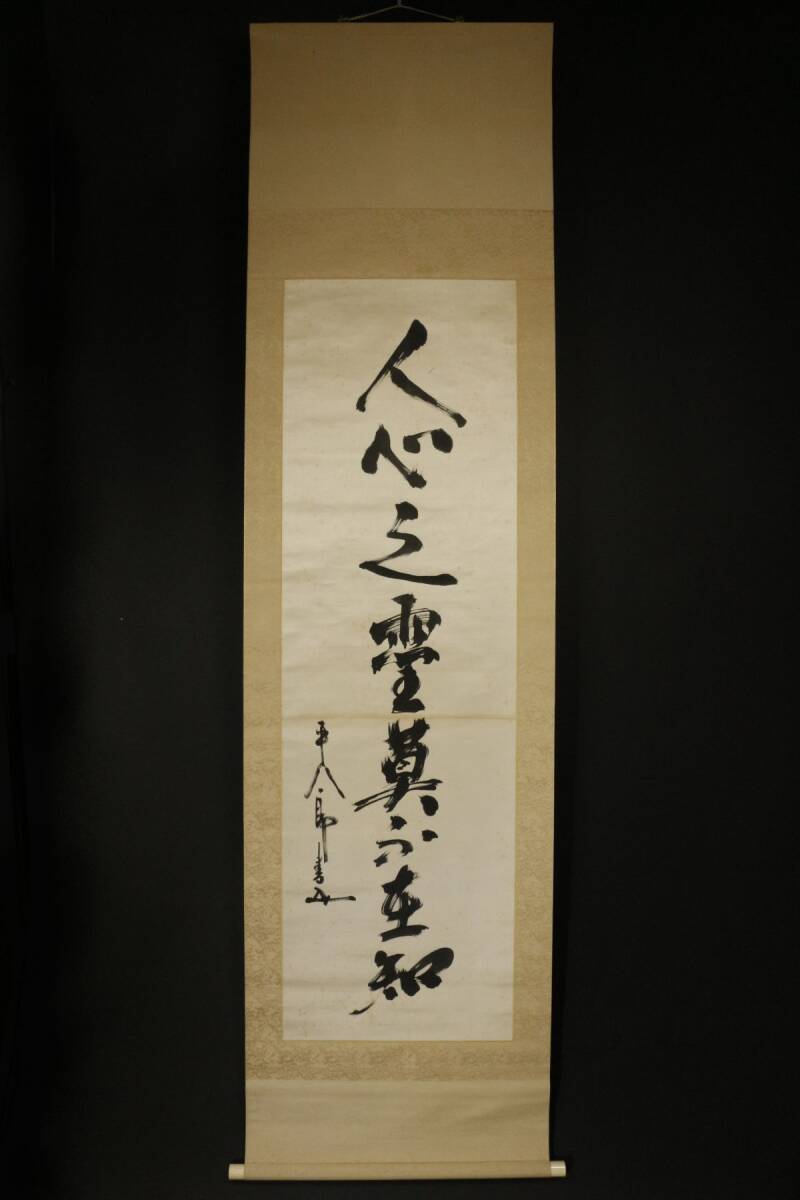 人心之靈莫不在知
平八郎書